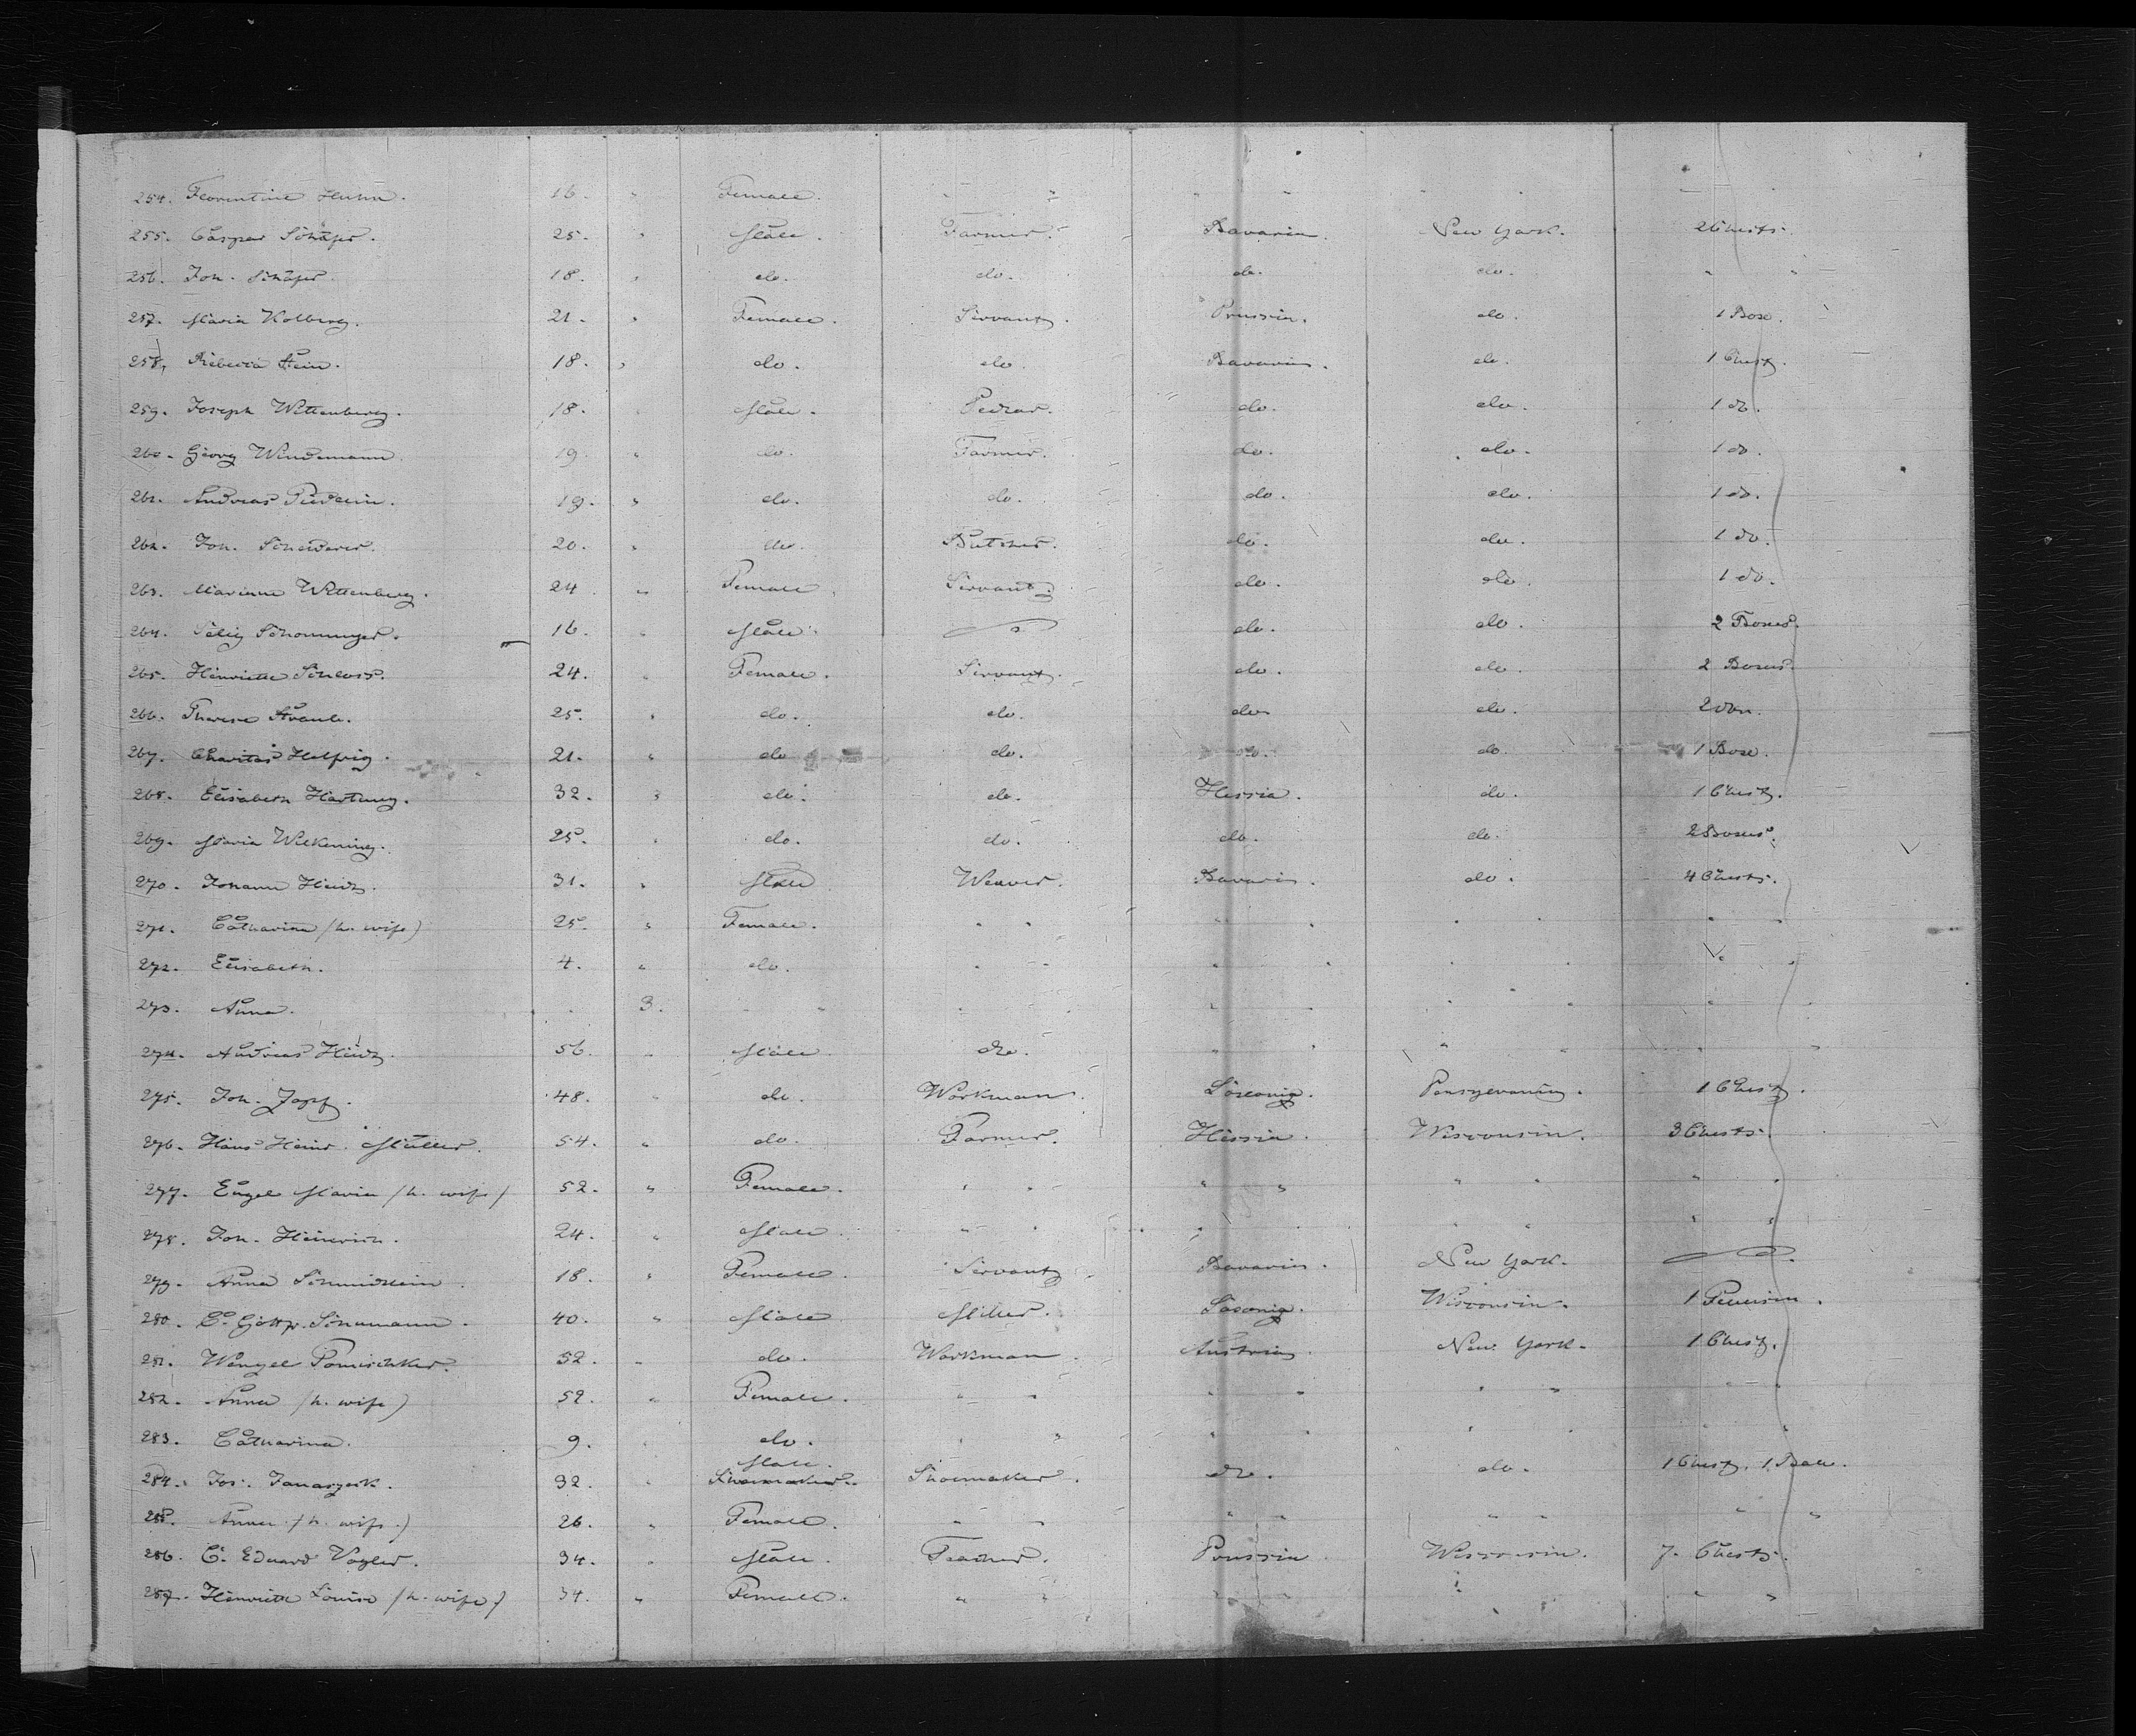 254. Florentine Huhn. 16. " Female. " " " " " " " "
255. Caspar Schäfer. 25. " Male. Farmer. Bavaria. New York. 2 Chests.
256. Joh. Schäfer. 18. " do. do. do. do. " "
257. Maria Kolberg. 21. " Female. Servant. Prussia. do. 1 Box.
258. Rebecca Stein. 18. " do. do. Bavaria. do. 1 Chest.
259. Joseph Wittenberg. 18. " Male. Pedlar. do. do. 1 do.
260. Georg Windemann. 19. " do. Farmer. do. do. 1 do.
261. Andreas 19. " do. do. do. do. 1 do.
262. Joh. Scheiderer. 20. " do. Butcher. do. do. 1 do.
263. Marianne Wittenberg. 24. " Female. Servant. do. do. 1 do.
264. Selig Schoninger. 16. " Male. do. do. 2 Boxes.
265. Henriette Schloss. 24. " Female. Servant. do. do. 2 Boxes.
266. Therese Straub. 25. " do. do. do. do. 2
267. Charitas Helfrig. 21. " do. do. do. do. 1 Box.
268. Elisabeth Hartung. 32. " do. do. Hessia. do. 1 Chest.
269. Maria Wilkening. 25. " do. do. do. do. 2 Boxes.
270. Johann Heidt. 31. " Male. Weaver. Bavaria. do. 4 Chests.
271. Catharina (h. wife) 25. " Female. " " " " " " " "
272. Elisabeth. 4. " do. " " " " " " " "
273. Anna. " 3. " " " " " " " " " "
274. Andreas Heidt. 56. " Male. do. " " " " " "
275. Joh. Zapf. 48. " do. Workman. Saxonia. Pensylvania. 1 Chest.
276. Hans Heinr. Müller. 54. " do. Farmer. Hessia. Wisconsin. 3 Chests.
277. Engel Maria (h. wife) 52. " Female. " " " " " " " "
278. Joh. Heinrich. 24. " Male. " " " " " " " "
279. Anna Schmidlein. 18. " Female. Servant. Bavaria. New York.
280. C. Gottfr. Schumann. 40. " Male. Miller. Saxonia. Wisconsin. 1
281. Wenzel Pomischker. 52. " do. Workman. Austria. New York. 1 Chest.
282. Anna (h. wife) 52. " Female. " " " " " " " "
283. Catharina. 9. " do. " " " " " " " "
284. Jos. Janaszek. 32. " Shoemaker. Male. Shoemaker. do. do. 1 Chest. 1 Bale.
285. Anna (h. wife.) 26. " Female. " " " " " " " "
286. C. Eduard Vogler. 34. " Male. Teacher. Prussia. Wisconsin. 7. Chests.
287. Henriette Louise (h. wife) 34. " Female. " " " " " " " "